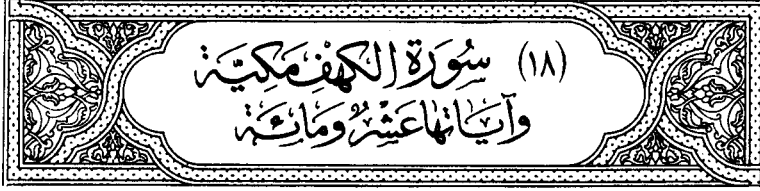 (١٨) سُورَة الكهفِ مَكيَّة
وَآيَاتهَا عَشْرٌ وَمَائة